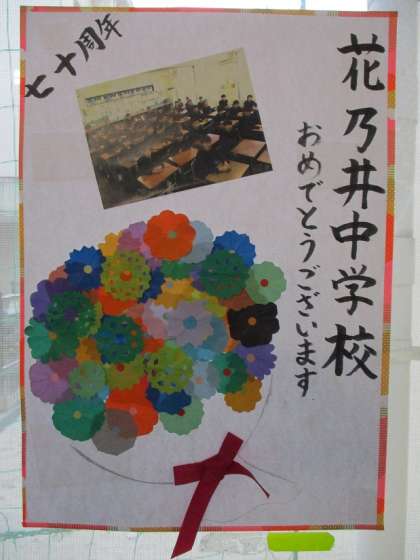 七十周年
花乃井中学校
おめでとうございます